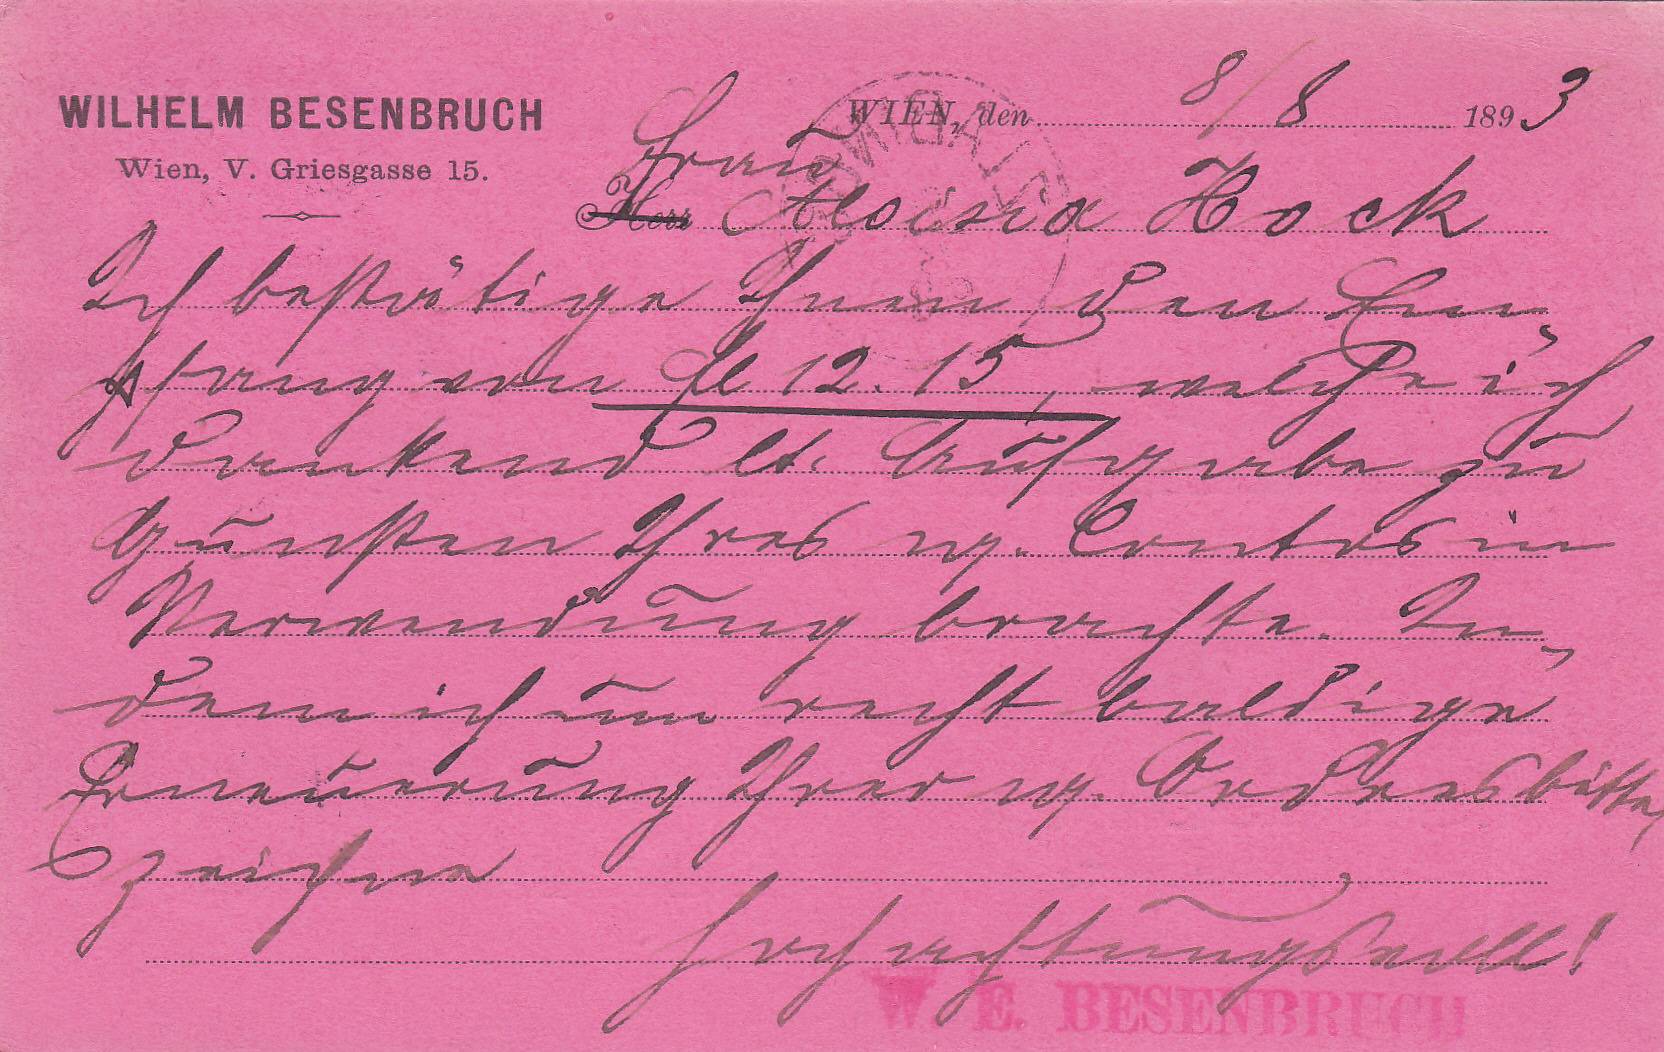 WILHELM BESENBRUCH
Wien, V. Griesgasse 15.
WIEN, den 8/8 1893
Frau
Herr Aloisia Hock
Ich bestätige Ihnen den Em-
pfang von fl 12.15, welche ich
dankend lt. Aufgabe zu
Gunsten Ihres w. Contos in
Verwendung brachte. In-
dem ich um recht baldige
Erneuerung Ihrer w. Ordres bitte,
zeichne
hochachtungsvoll!
W. E. BESENBRUCH